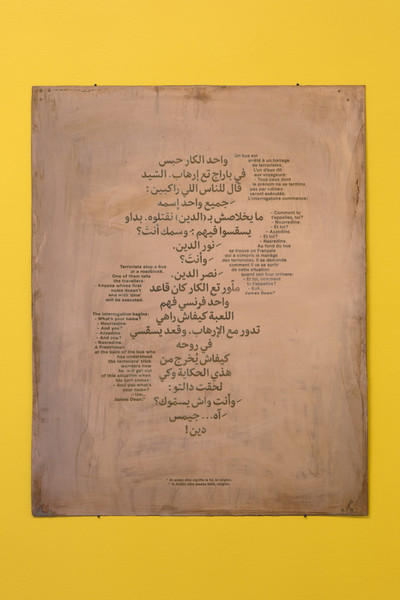 واحد الكار حبس
في باراج تع إرهاب. الشيد
قال للناس اللي راكبين:
- جميع واحد إسمه
ما يخلاصش بـ (الدين) نقتلوه. بداو
يسقسوا فيهم: وسمك أنتَ؟
- نور الدين.
- وأنتَ؟
- نصر الدين.
تع الكار كان قاعد
واحد فرنسي فهم
اللعبة كيفاش راهي
تدور مع الإرهاب، وقعد يسقسي
في روحه
كيفاش يُخرج من
هذي الحكاية وكي
لحقت دالتو:
- وأنت واش يسمّوك؟
- آه... جيمس
دين!
Un bus est
arrêté à un barrage
de terroristes.
L'un d'eux dit
aux voyageurs:
- Tous ceux dont
le prénom ne se termine
pas par «dine»
seront exécutés.
L'interrogatoire commence:
- Comment tu
t'appelles, toi?
- Nouredine.
- Et toi?
- Azzedine.
- Et toi?
- Nasredine.
Au fond du bus
se trouve un Français
qui a compris le manège
des terroristes. Il se demande
comment il va se sortir
de cette situation
quand son tour arrivera:
- Et toi, comment
tu t'appelles?
- Euh...
James Dean!*
Terrorists stop a bus
at a roadblock.
One of them tells
the travellers:
- Anyone whose first
name doesn't
end with 'dine'
will be executed.
The interrogation begins:
- What's your name?
- Nouredine.
- And you?
- Azzedine.
- And you?
- Nasredine.
A Frenchman
at the back of the bus who
has understood
the terrorists' trick
wonders how
he will get out
of this situation when
his turn comes:
- And you what's
your name?
- Um...
James Dean!*
* En arabe dine signifie la foi, la religion.
* In Arabic dine means faith, religion.